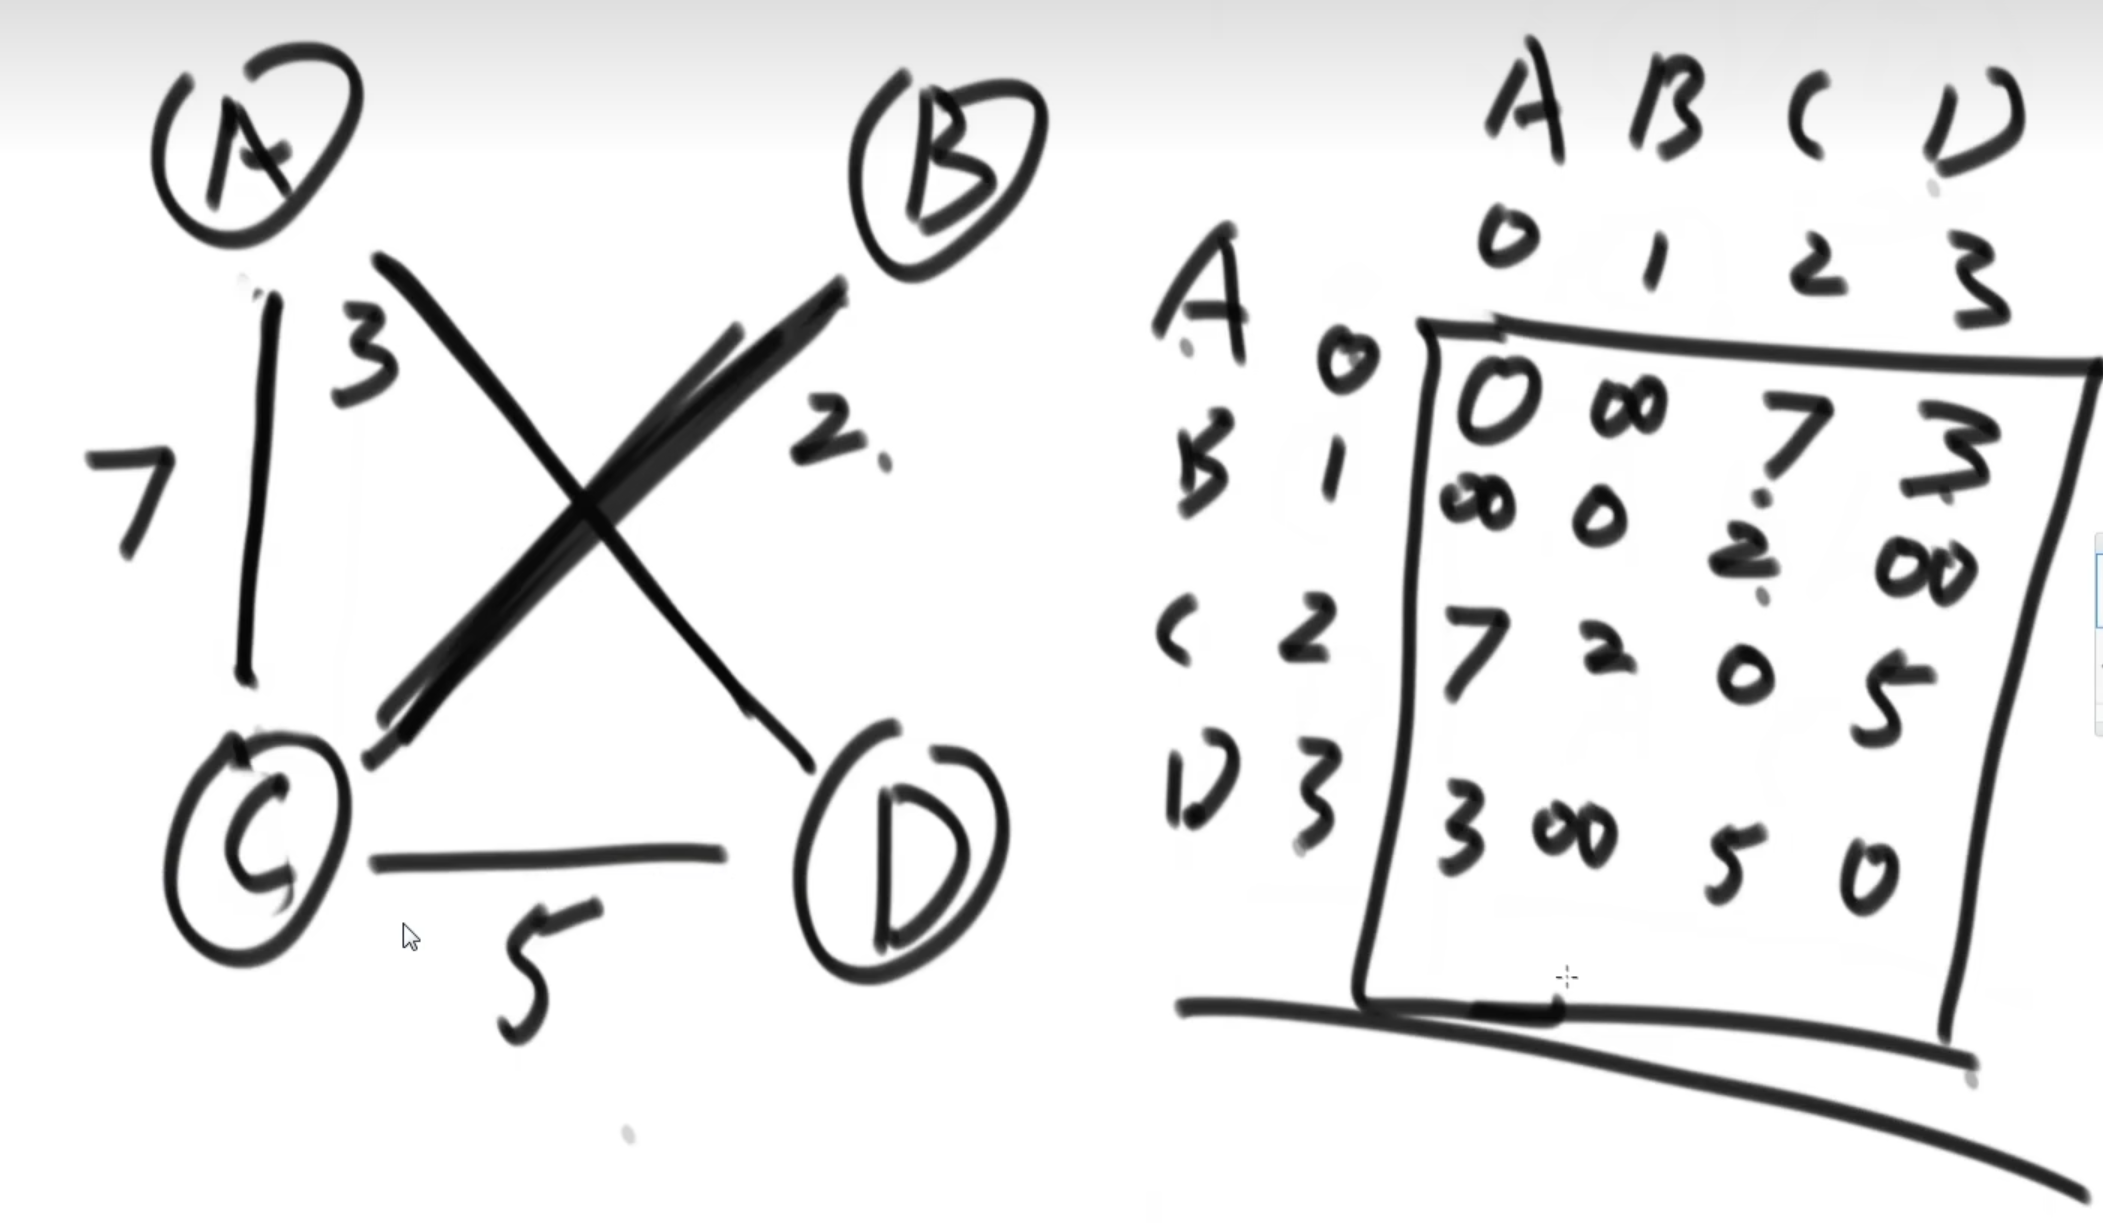 A B
3
2.
7
C D
5
A B C D
0 1 2 3
A 0 0 ∞ 7 3
B 1 ∞ 0 2 ∞
C 2 7 2 0 5
D 3 3 ∞ 5 0